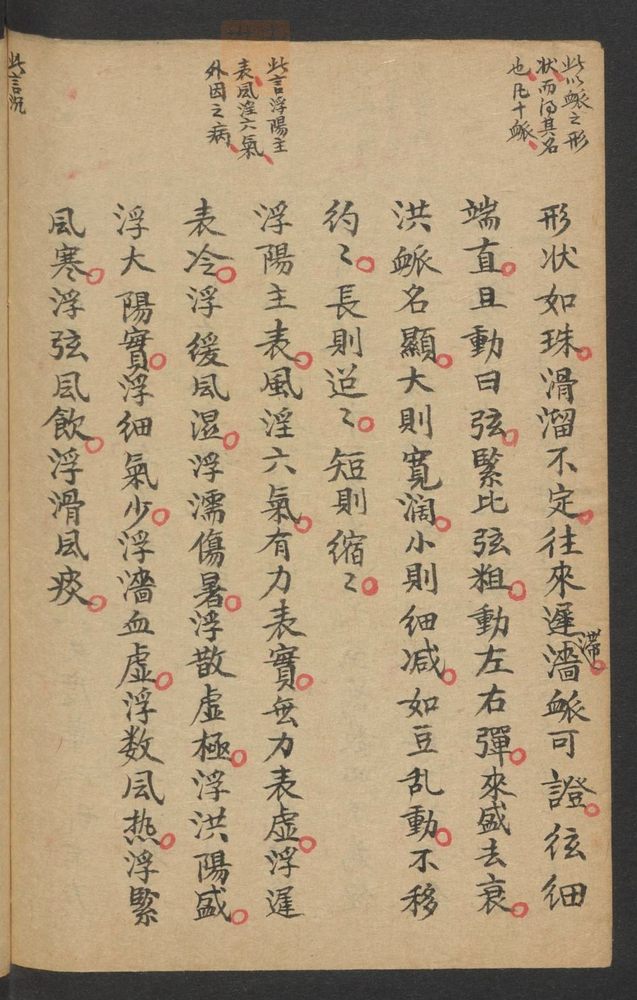 此以衇之形
状而得其名
也凡十衇
形状如珠。滑溜不定。往來遲濇滯。衇可證。弦細
端直。且動曰弦。緊比弦粗。動左右彈。來盛去衰。
洪衇名顯。大則寬濶。小則细减。如豆乱動。不移
约〻。長則迢〻。短則缩〻。
此言浮陽主
表風淫六氣
外因之病
浮陽主表。風淫六氣。有力表實。無力表虛。浮遲
表冷。浮缓風濕。浮濡傷暑。浮散虛極。浮洪陽盛。
浮大陽實。浮细氣少。浮濇血虛。浮数風热。浮緊
風寒。浮弦風飲。浮滑風痰。
此言沉